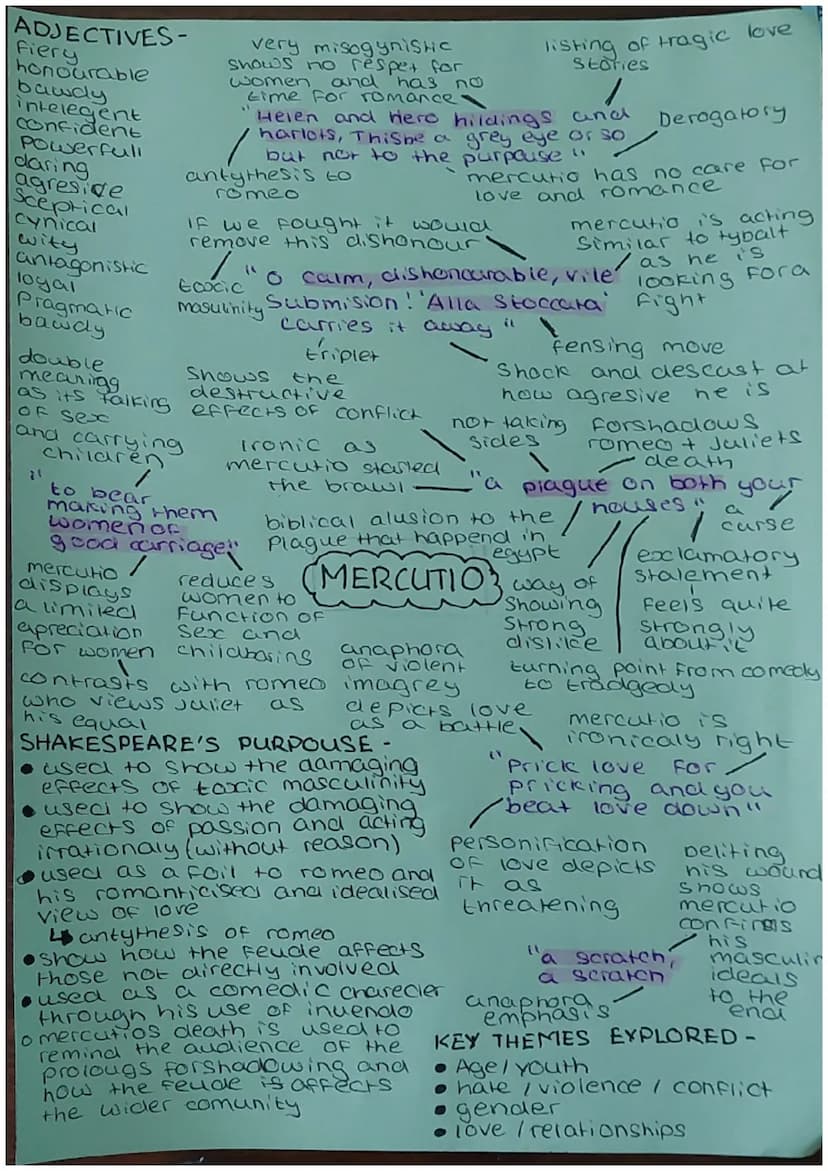 ADJECTIVES-
fiery
honourable
bawdy
intelegent
confident
powerfull
daring
agresive
sceptical
cynical
wity
antagonistic
loyal
pragmatic
bawdy
very misogynistic
shows no respet for
women and has no
time for romance
listing of tragic love
stories
"Helen and Hero hildings and
harlots, Thisbe a grey eye or so
but not to the purpouse"
Derogatory
antythesis to
romeo
mercutio has no care for
love and romance
if we fought it would
remove this dishonour
mercutio is acting
similar to tybalt
as he is
looking for a
fight
toxic
masulinity
"O calm, dishonourable, vile
submision! 'Alla stoccata'
carries it away"
triplet
fensing move
shock and descust at
how agresive he is
double
meaning
as its talking
of sex
and carrying
children
shows the
destructive
effects of conflict
ironic as
mercutio started
the brawl
not taking
sides
forshadows
romeo + Juliets
death
"a plague on both your
houses"
a
curse
"to bear
making them
women of
good carriage"
biblical alusion to the
plague that happend in
egypt
MERCUTIO
way of
showing
strong
dislike
exclamatory
statement
feels quite
strongly
about it
mercutio
displays
a limited
apreciation
for women
reduces
women to
function of
sex and
childbaring
turning point from comedy
to tradgedy
contrasts with romeo
who views Juliet as
his equal
anaphora
of violent
imagrey
depicts love
as a battle
mercutio is
ironicaly right
"Prick love for
pricking and you
beat love down"
personification
of love depicts
it as
threatening
SHAKESPEARE'S PURPOUSE -
• used to show the damaging
effects of toxic masculinity
• used to show the damaging
effects of passion and acting
irrationaly (without reason)
• used as a foil to romeo and
his romanticised and idealised
view of love
↳ antythesis of romeo
• show how the feude affects
those not directly involved
• used as a comedic charecter
through his use of inuendo
o mercutios death is used to
remind the audience of the
prolougs forshadowing and
how the feude is affects
the wider comunity
Beliting
his wound
shows
mercutio
confirms
his
masculin
ideals
to the
end
"a scratch,
a scratch
anaphora
emphasis
KEY THEMES EXPLORED -
• Age/youth
• hate / violence / conflict
• gender
• love / relationships